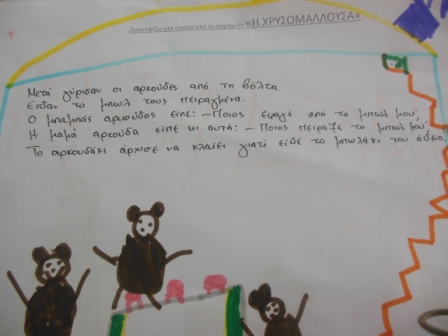 Ζωγραφίζω μια εικόνα από το παραμύθι «Η ΧΡΥΣΟΜΑΛΛΟΥΣΑ»
Μετά γύρισαν οι αρκούδες από τη βόλτα.
Είδαν το μπωλ τους πειραγμένα.
Ο μπαμπάς αρκούδος είπε: – Ποιος έφαγε από το μπωλ μου;
Η μαμά αρκούδα είπε κι αυτή: – Ποιος πείραξε το μπωλ μου;
Το αρκουδάκι άρχισε να κλαίει γιατί είδε το μπωλάκι του άδειο.